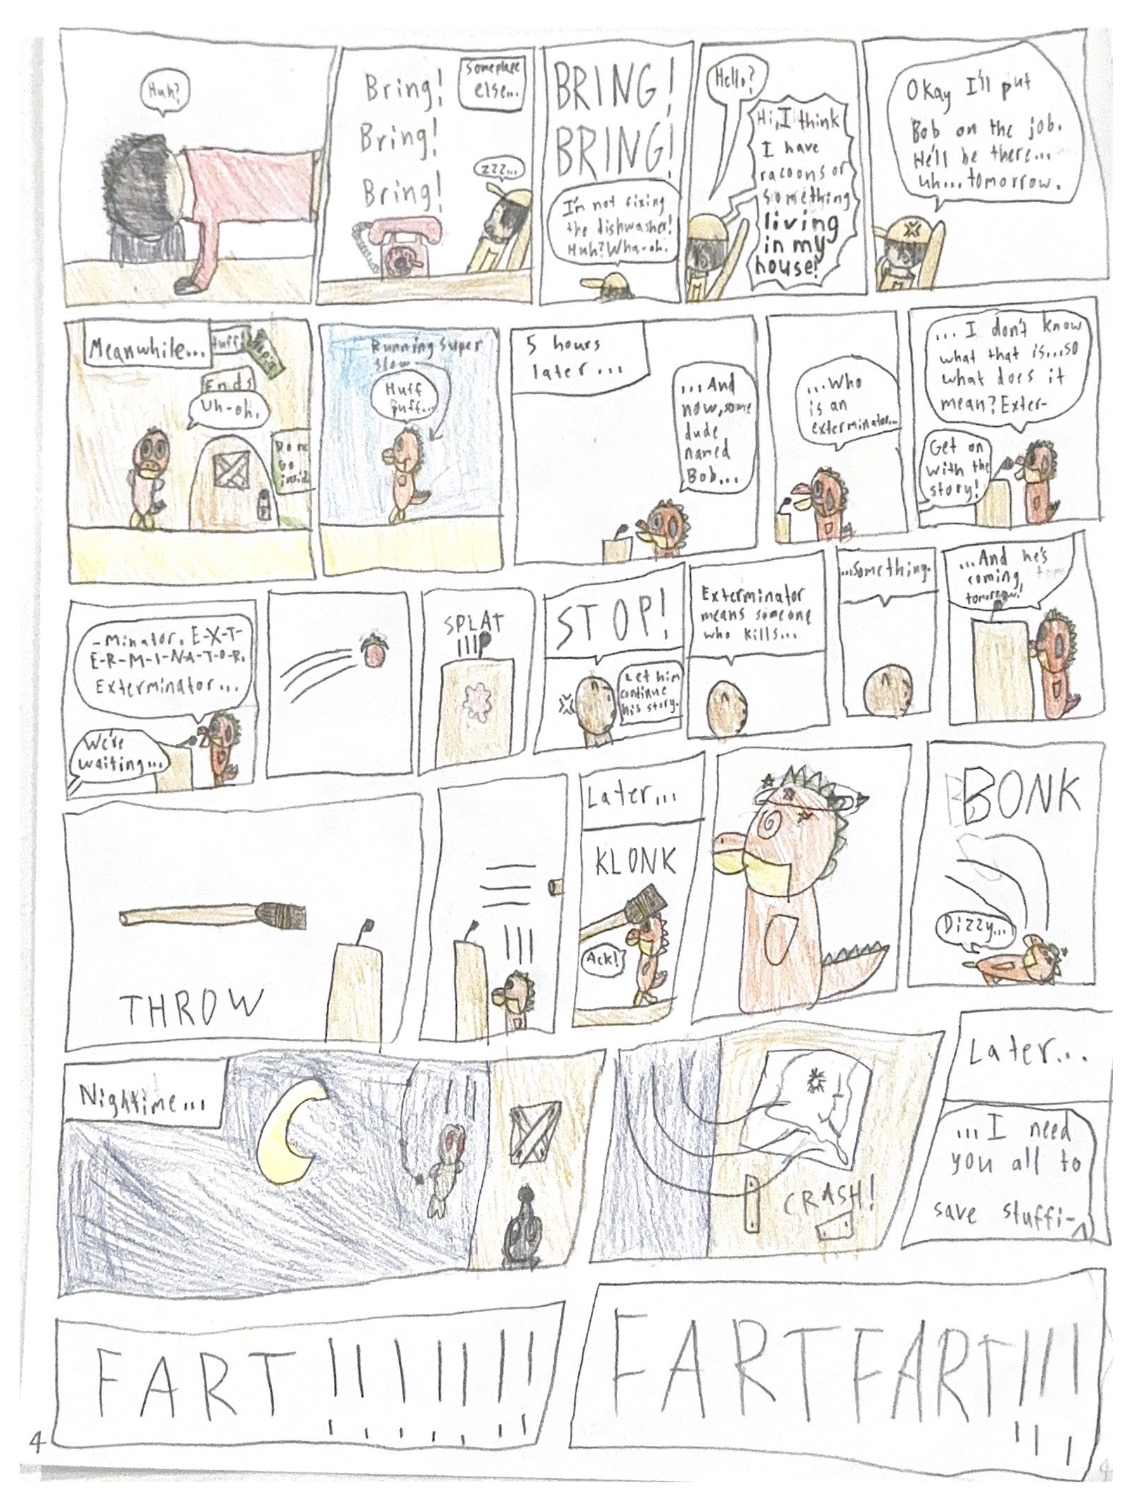 Huh?
Bring!
Bring!
Bring!
Someplace
else...
zzz...
BRING!
BRING!
I'm not fixing
the dishwasher!
Huh? Wha-oh.
Hello?
Hi, I think
I have
racoons or
something
living
in my
house!
Okay I'll put
Bob on the job.
He'll be there...
uh...tomorrow.
Meanwhile...
Huff!
Ends
Uh-oh.
Running super
slow
Huff
puff...
5 hours
later...
...And
now, some
dude
named
Bob...
...Who
is an
exterminator...
... I don't know
what that is...so
what does it
mean? Exter-
Get on
with the
story!
-minator. E-X-T-
E-R-M-I-N-A-T-O-R.
Exterminator...
We're
waiting...
SPLAT
STOP!
Let him
continue
his story.
Exterminator
means someone
who kills...
...something.
...And he's
coming
tomorrow!
THROW
Later...
KLONK
Ack!
BONK
Dizzy...
Nightime...
CRASH!
Later...
...I need
you all to
save stuffi-
FART!!!!!!!
FARTFART!!!
4